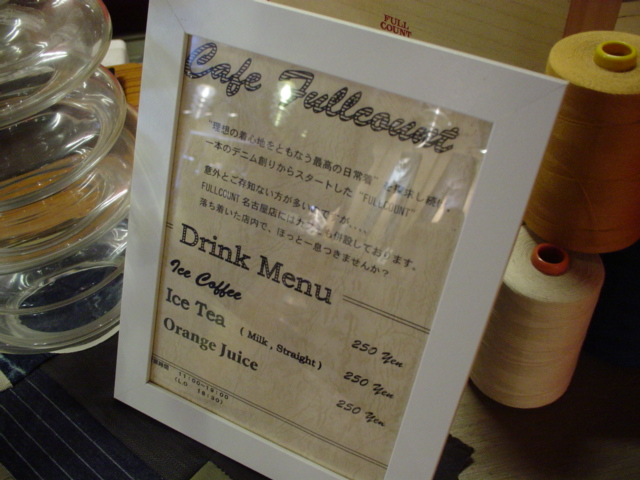 FULL
COUNT
Cafe Fullcount
"理想の着心地をともなう最高の日常着"を
一本のデニム創りからスタートした "FULLCOUNT"
意外とご存知ない方が多い
FULLCOUNT 名古屋店には 併設しております。
落ち着いた店内で、ほっと一息つきませんか?
Drink Menu
Ice Coffee 250 Yen
Ice Tea ( Milk , Straight ) 250 Yen
Orange Juice 250 Yen
11:00~19:00
(L.O. 18:30)